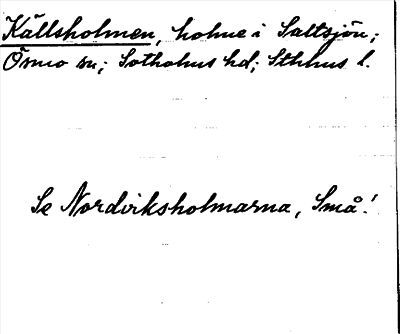 Källsholmen, holme i Saltsjön;
Ösmo sn; Sotholms hd; Sthlms l.
Se Nordviksholmarna, Små!